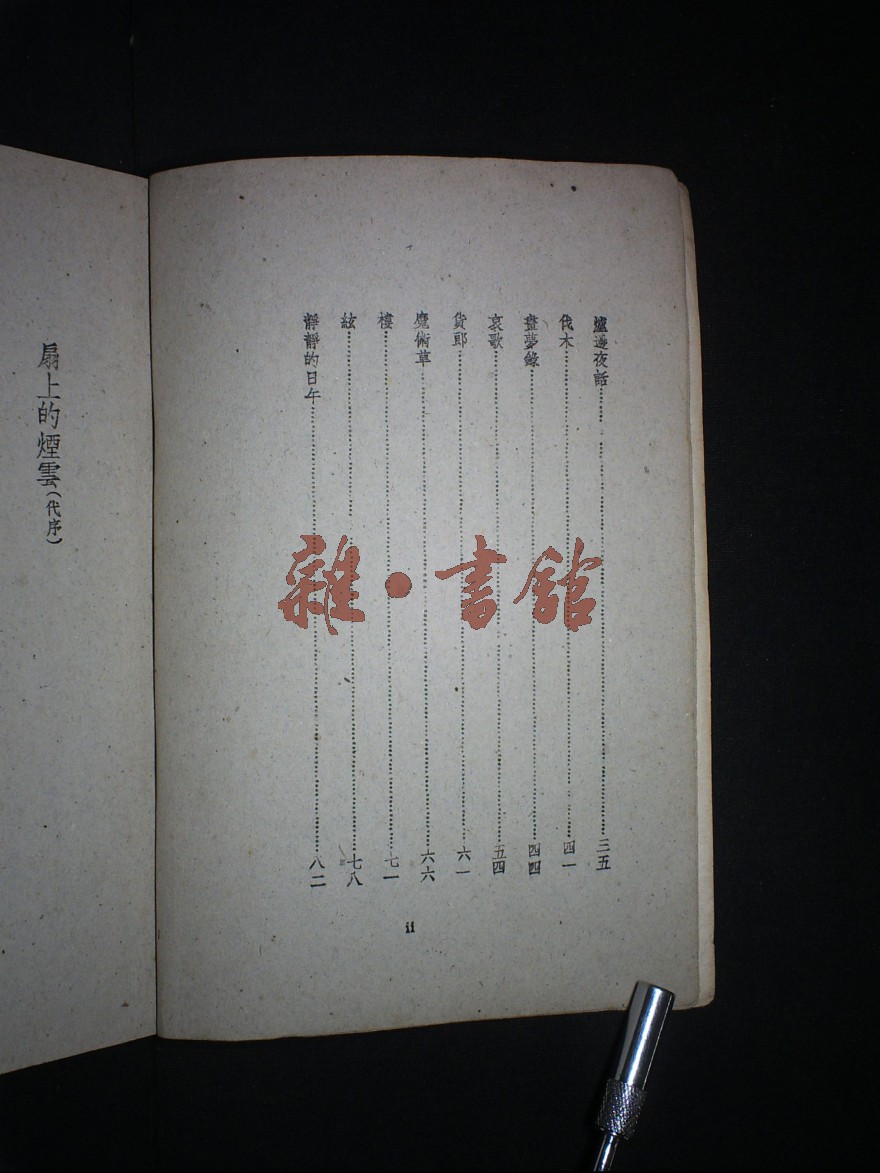 爐邊夜話……三五
伐木……四一
畫夢錄……四四
哀歌……五四
貨郎……六一
魔術草……六六
樓……七一
絃……七八
靜靜的日午……八二
ii
扇上的煙雲(代序)
雜·書館